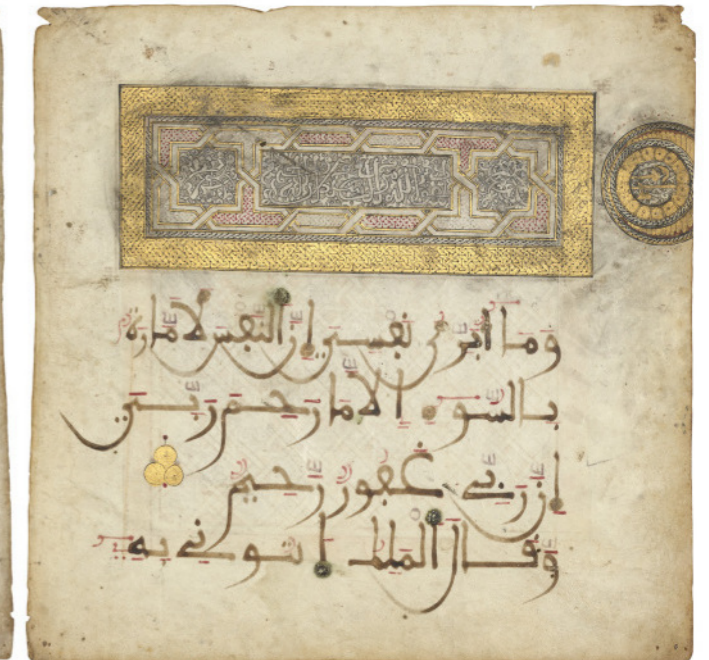 وما أبرئ نفسي إن النفس لأمارة
بالسوء الا ما رحم ربي
إن ربي غفور رحيم
وقال الملك ائتوني به